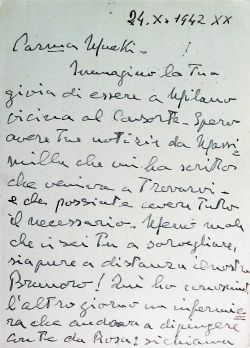 24. X. 1942 XX
Carina Mucki -
Immagino la tua
gioia di essere a Milano
vicina al Consorte. Spero
avere tue notizie da Massi
milla che mi ha scritto
che veniva a trovarvi -
e che possiate avere tutto
il necessario. Meno male
che ci sei Tu a sorvegliare,
sia pure a distanza il nostro
Brunoro! Qui ho conosciuto
l'altro giorno un infermie
ra che andava a dipingere
con te da Rosa: si chiama